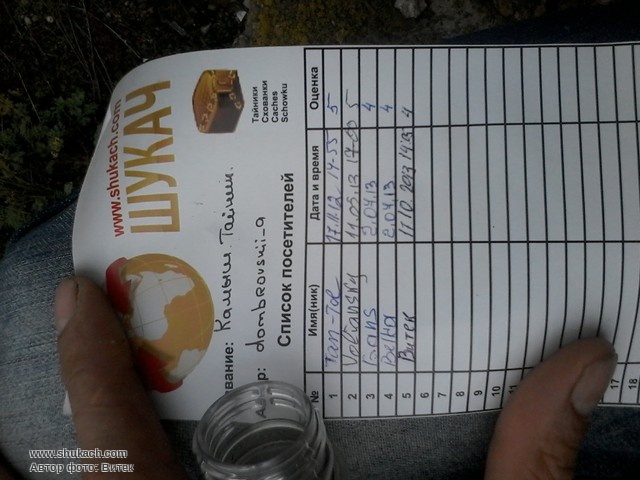 www.shukach.com
ШУКАЧ
Тайники
Схованки
Caches
Schowku
вание: Камыш. Тайник.
р: dombrovskij_a
Список посетителей
№ Имя(ник) Дата и время Оценка
1 17.11.12 14-55 5
2 Voltanskiy 11.05.13 17-00 5
3 Gans 2.04.13 4
4 2.04.13 4
5 Витек 11.10.2013 14:23 4
6
7
8
9
10
11
17
18
www.shukach.com
Автор фото: Витек